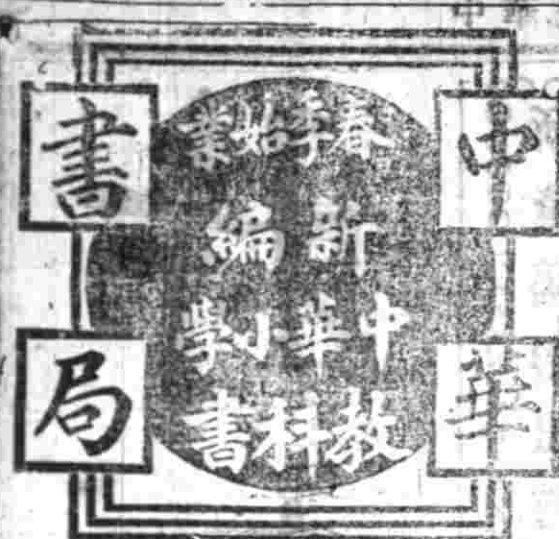 中華書局
春季始業
新編
中華小學
教科書